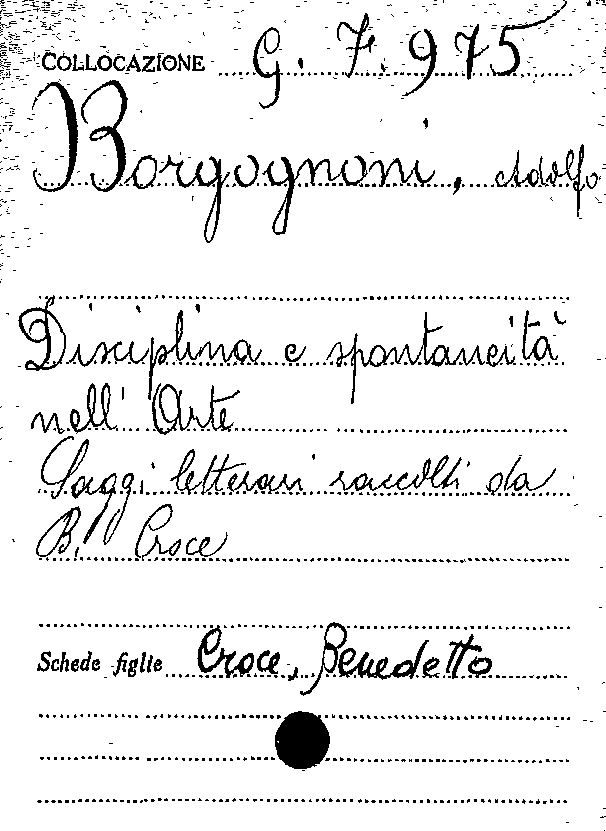 COLLOCAZIONE G. F. 975
Borgognoni, Adolfo
Disciplina e spontaneità
nell' Arte
Saggi letterari raccolti da
B. Croce
Schede figlie Croce, Benedetto